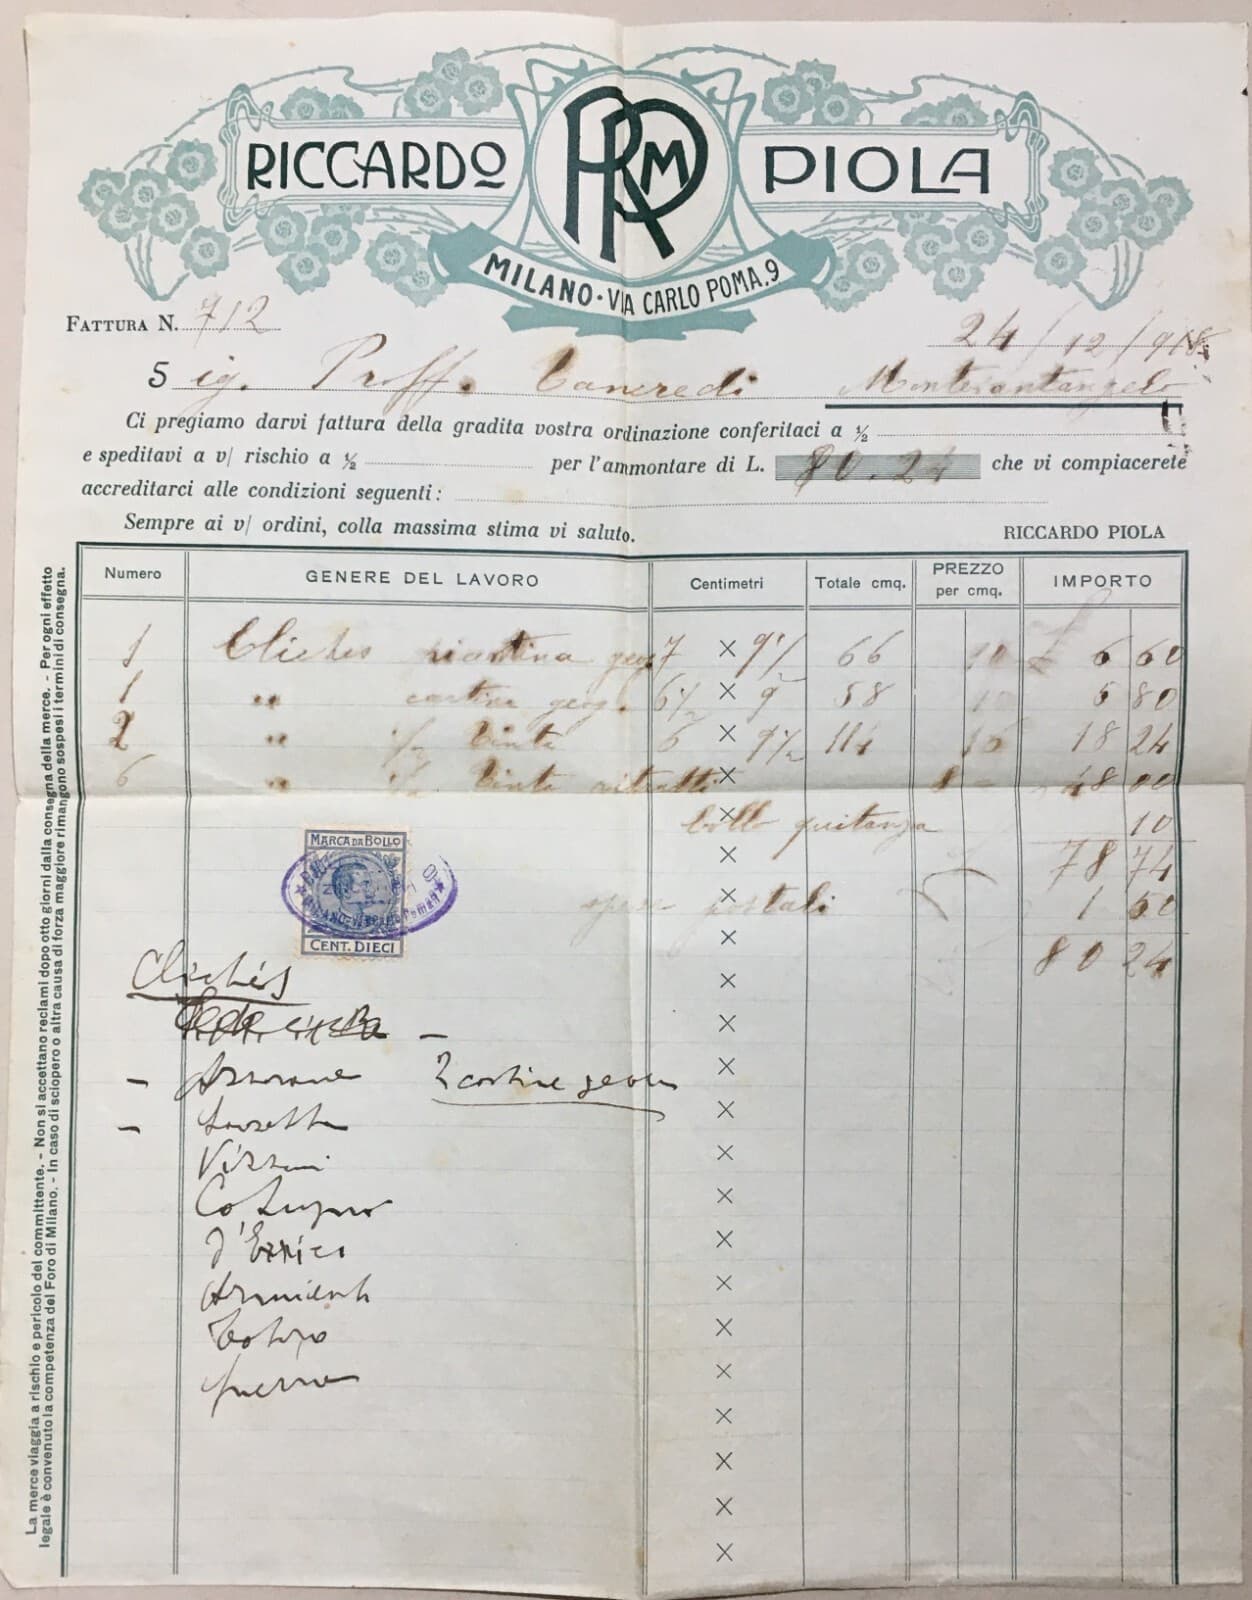 RICCARDO PRM PIOLA
MILANO · VIA CARLO POMA. 9
FATTURA N. 712
24/12/918
Sig. Proff. Tancredi Montesantangelo
Ci pregiamo darvi fattura della gradita vostra ordinazione conferitaci a ½
e speditavi a v/ rischio a ½ per l'ammontare di L. 80.24 che vi compiacerete
accreditarci alle condizioni seguenti:
Sempre ai v/ ordini, colla massima stima vi saluto.
RICCARDO PIOLA
Numero GENERE DEL LAVORO Centimetri Totale cmq. PREZZO per cmq. IMPORTO
1 Cliches piantina geog 7 × 9½ 66 10 £ 6 60
1 " cartina geog. 6½ × 9 58 10 5 80
2 " ½ tinte 6 × 9½ 114 16 18 24
6 " ½ tinte ritratti × 8 - 48 00
bollo quitanza × 10
× 78 74
spese postali × 1 50
× 80 24
MARCA DA BOLLO
CENT. DIECI
Clichés
2 cartine geog
Vizzini
Cotugno
d'Errico
Guerra
La merce viaggia a rischio e pericolo del committente. - Non si accettano reclami dopo otto giorni dalla consegna della merce. - Per ogni effetto
legale è convenuto la competenza del Foro di Milano. - In caso di sciopero o altra causa di forza maggiore rimangono sospesi i termini di consegna.